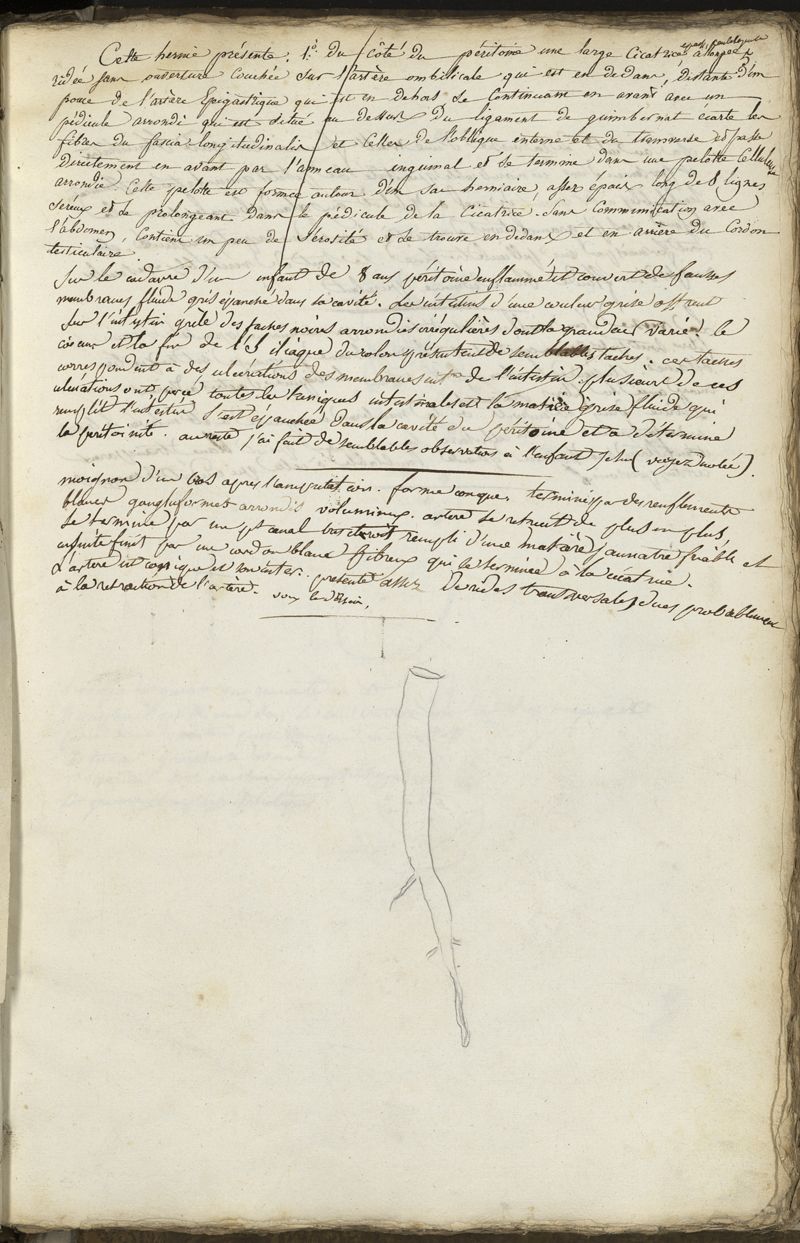 Cette hernie présente. 1.° du côté du péritoine une large Cicatrice
ridée sans ouverture Couchée sur l'artère ombilicale qui est en dedans, distante d'un
pouce de l'artère Epigastrique qui est en dehors se Continuant en avant avec un
pédicule arrondi qui est situé au dessus du ligament de guimbernat écarte les
fibres du fascia longitudinalis et Celles de l'oblique interne et du transverse et passe
directement en avant par l'anneau inguinal et se termine dans une pelotte Celluleuse
arrondie. Cette pelote est formée autour d'un sac herniaire, assez épais long de 8 lignes
séreux et se prolongeant dans le pédicule de la Cicatrice. Sans Communication avec
l'abdomen, Contient un peu de Sérosité et se trouve en dedans et en arrière du Cordon
testiculaire.
Sur le cadavre d'un enfant de 8 ans péritoine enflammé et couvert de fausses
membranes fluide gris épanché dans la cavité. Les intestins d'une couleur grise offrent
sur l'intestin grêle des taches noires arrondies irrégulières dont la grandeur varie. le
coecum et la fin de l'S iliaque du colon présentent de semblables taches. ces taches
correspondent à des ulcérations des membranes int. de l'intestin. plusieurs de ces
ulcérations ont percé toutes les tuniques intestinales et la matière grise fluide qui
remplit l'intestin s'est épanchée dans la cavité du péritoine et a déterminé
la péritonite. au reste j'ai fait de semblables observations à l'enfant Jesus (voyez).
moignon d'un bras après l'amputation. forme conique, terminé par des renflements
blancs gangliformes arrondis volumineux. artère se retrecit de plus en plus,
se termine par un pt canal très étroit rempli d'une matière jaunatre friable et
ensuite finit par un cordon blanc fibreux qui se termine à la cicatrice.
L'artère est conique et présente assez de rides transversales dues probablement
à la retraction de l'artère. voyez le dessin.